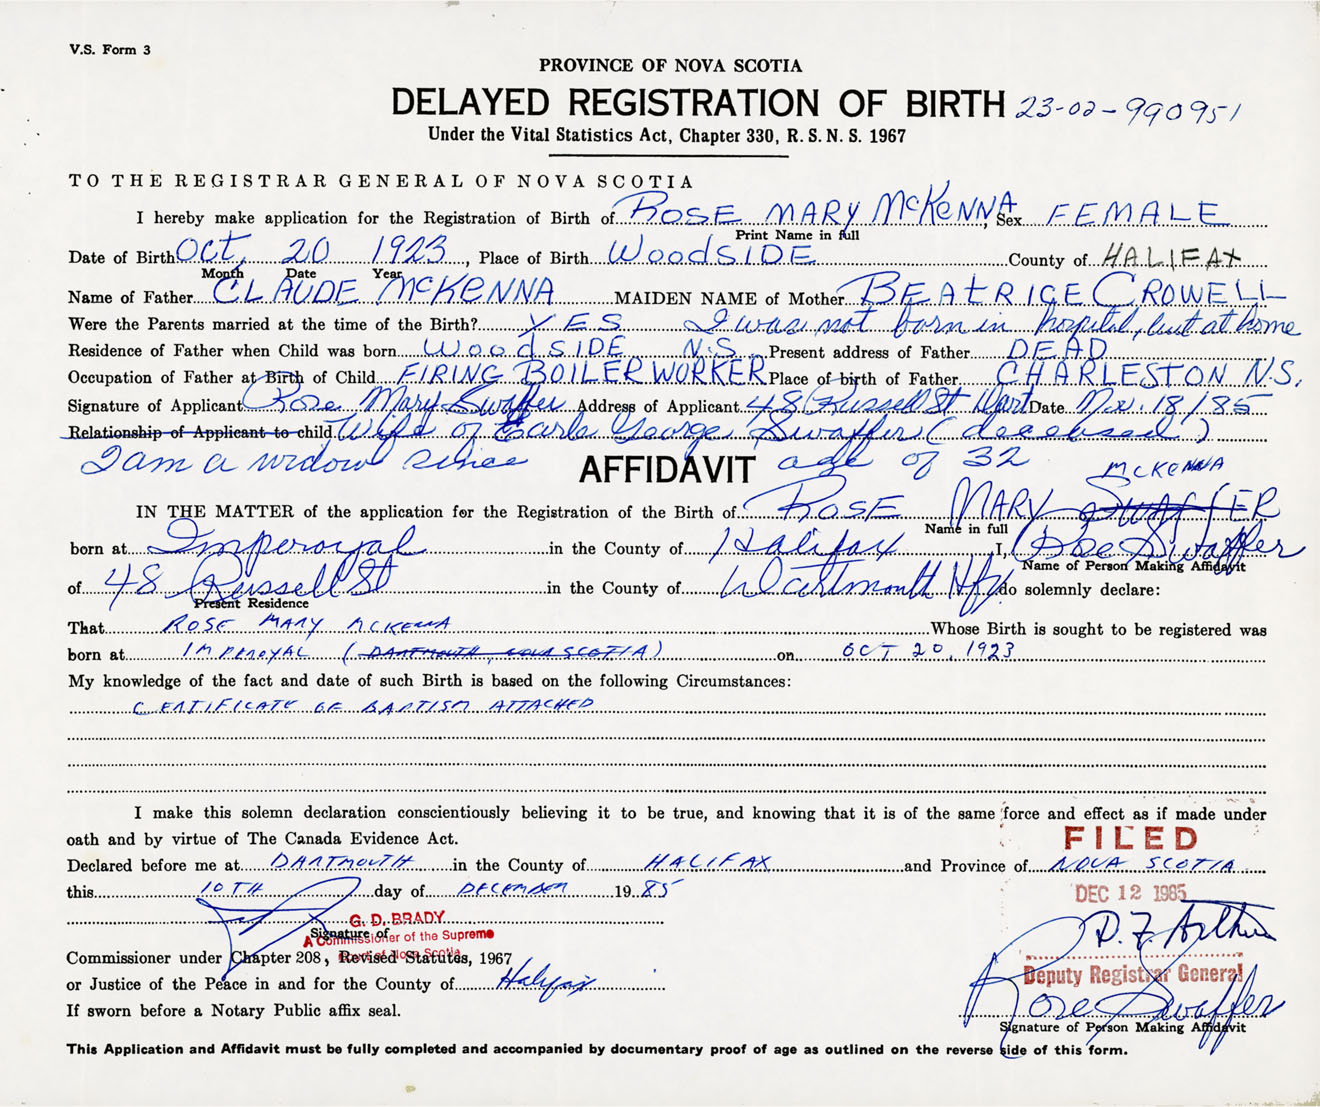 V.S. Form 3
PROVINCE OF NOVA SCOTIA
DELAYED REGISTRATION OF BIRTH 23-02-990951
Under the Vital Statistics Act, Chapter 330, R.S.N.S. 1967
TO THE REGISTRAR GENERAL OF NOVA SCOTIA
I hereby make application for the Registration of Birth of ROSE MARY McKENNA, Sex FEMALE
Print Name in full
Date of Birth Oct, 20 1923, Place of Birth WoodSIDE County of HALIFAX
Month Date Year
Name of Father CLAUDE McKENNA MAIDEN NAME of Mother BEATRICE CROWELL
Were the Parents married at the time of the Birth? YES I was not born in hospital, but at home
Residence of Father when Child was born WoodSIDE N.S. Present address of Father DEAD
Occupation of Father at Birth of Child FIRING BOILER WORKER Place of birth of Father CHARLESTON N.S.
Signature of Applicant Rose Mary Swaffer Address of Applicant 48 Russell St Dart Date Nov. 18/85
Relationship of Applicant to child Wife of Earle George Swaffer (deceased)
I am a widow since AFFIDAVIT age of 32
McKENNA
IN THE MATTER of the application for the Registration of the Birth of ROSE MARY SWAFFER
Name in full
born at Imperoyal in the County of Halifax, I, Rose Swaffer
Name of Person Making Affidavit
of 48 Russell St in the County of Dartmouth Hfx do solemnly declare:
Present Residence
That ROSE MARY MCKENNA Whose Birth is sought to be registered was
born at IMPEROYAL (DARTMOUTH, NOVA SCOTIA) on OCT 20, 1923
My knowledge of the fact and date of such Birth is based on the following Circumstances:
CERTIFICATE OF BAPTISM ATTACHED
I make this solemn declaration conscientiously believing it to be true, and knowing that it is of the same force and effect as if made under
oath and by virtue of The Canada Evidence Act.
FILED
Declared before me at DARTMOUTH in the County of HALIFAX and Province of NOVA SCOTIA
this 10TH day of DECEMBER 1985
DEC 12 1985
G. D. BRADY
Signature of
A Commissioner of the Supreme
Court of Nova Scotia
Commissioner under Chapter 208, Revised Statutes, 1967
Deputy Registrar General
or Justice of the Peace in and for the County of Halifax
If sworn before a Notary Public affix seal.
Rose Swaffer
Signature of Person Making Affidavit
This Application and Affidavit must be fully completed and accompanied by documentary proof of age as outlined on the reverse side of this form.